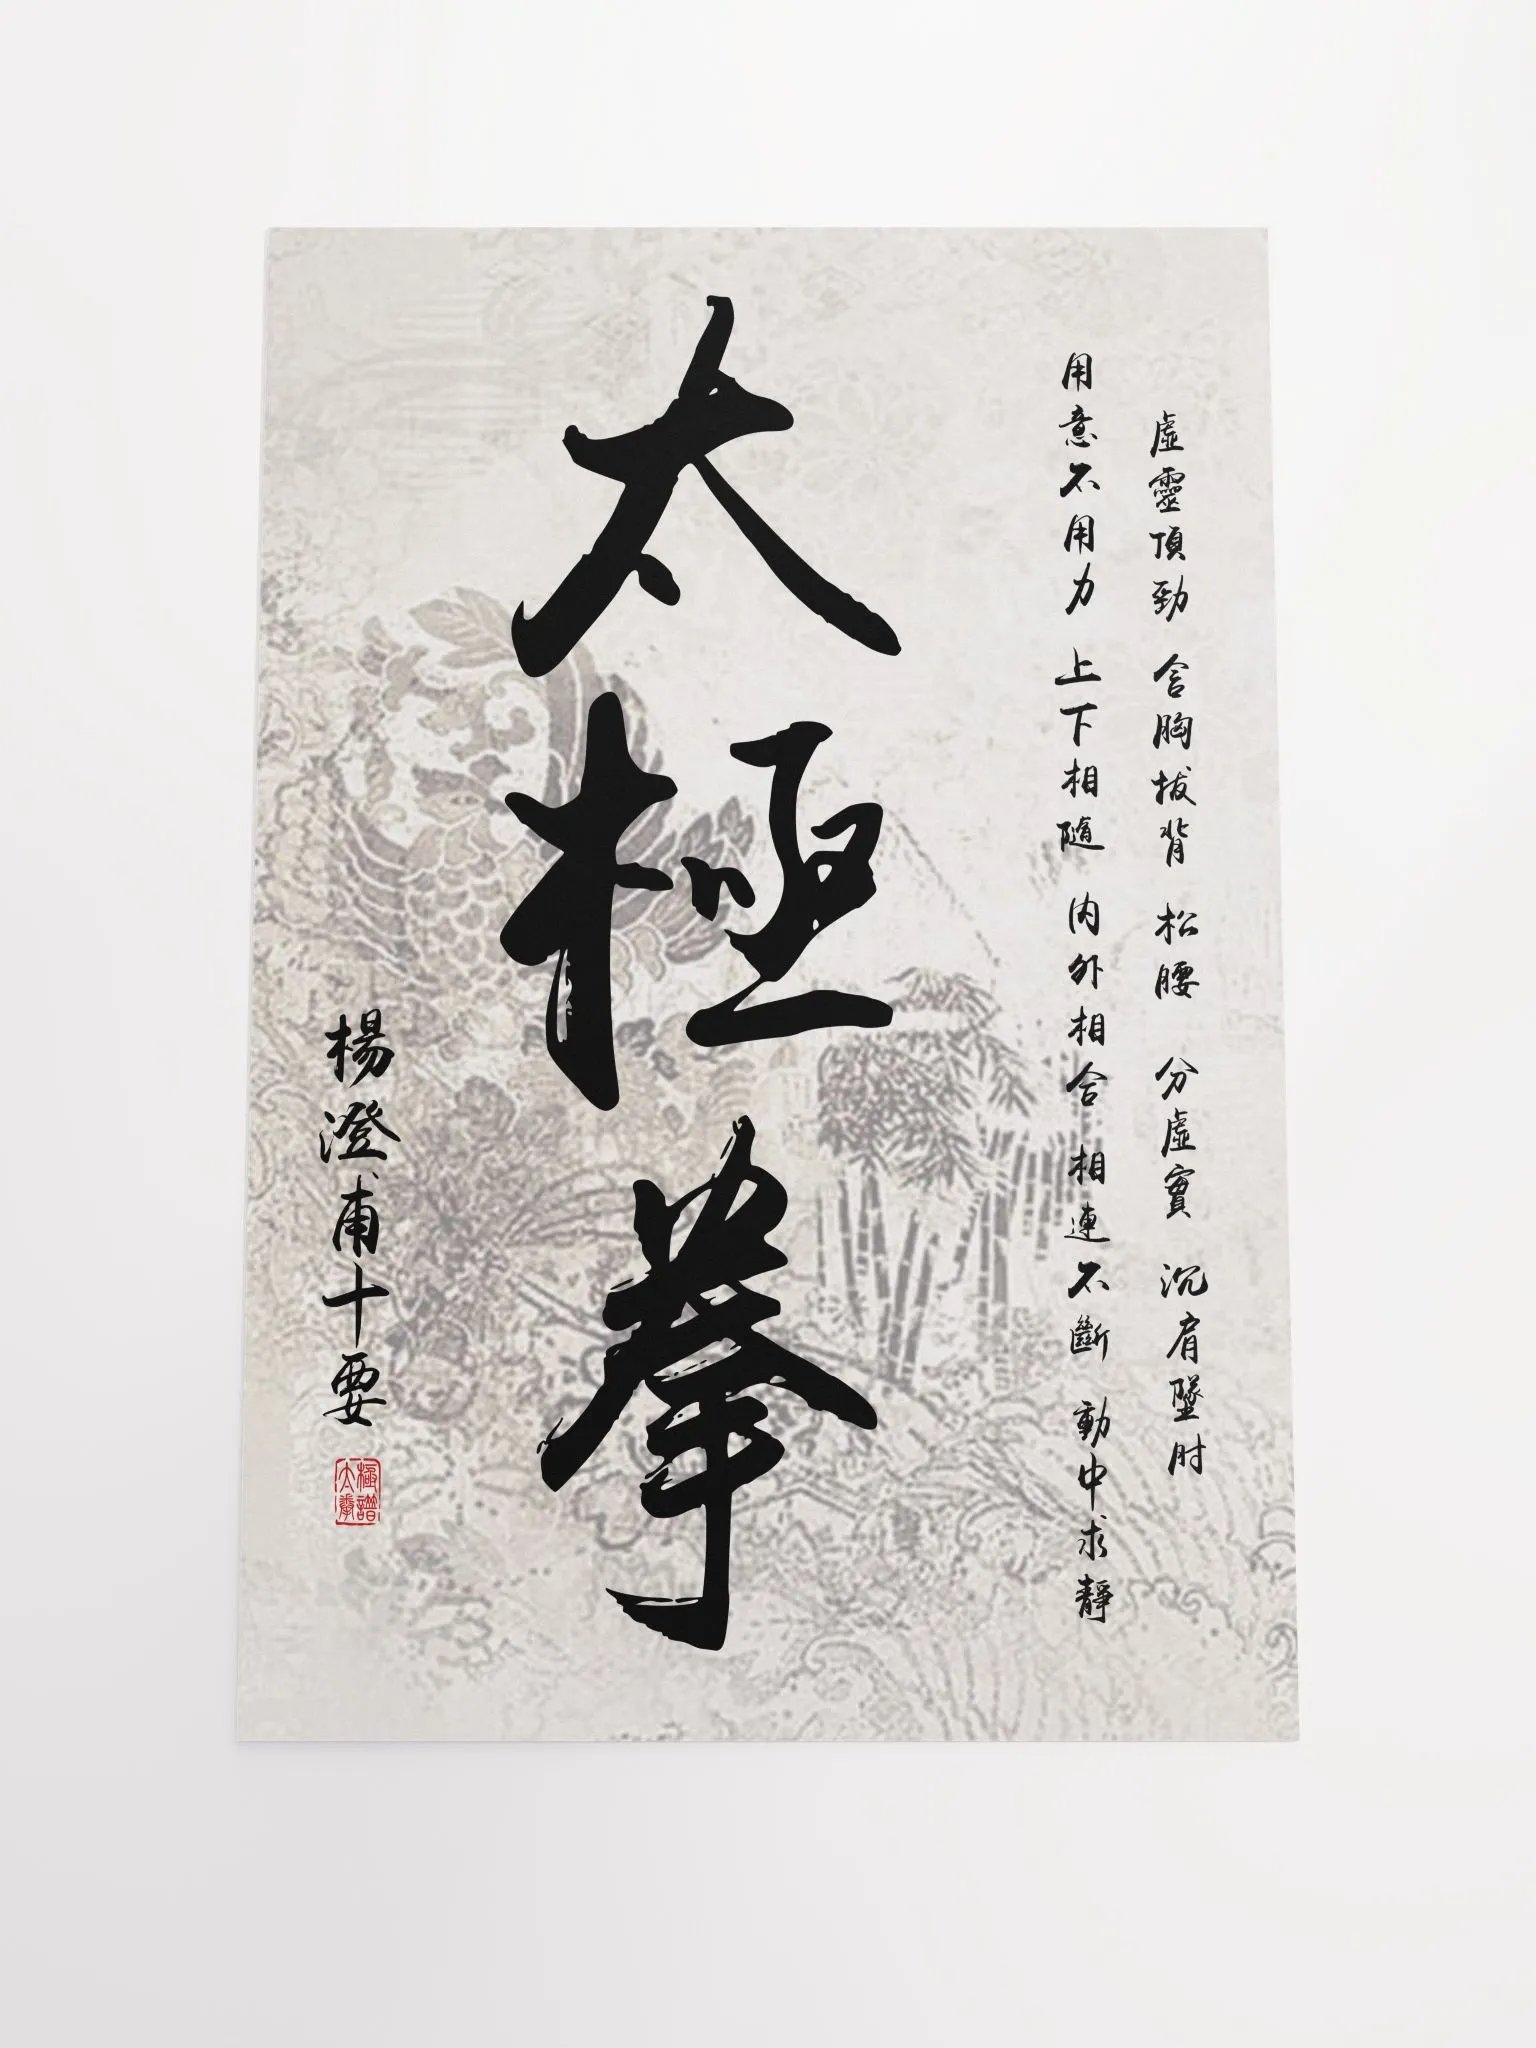 虛靈頂勁 含胸拔背 松腰 分虛實 沉肩墜肘
用意不用力 上下相隨 內外相合 相連不斷 動中求靜
太極拳
楊澄甫十要
極譜
太拳